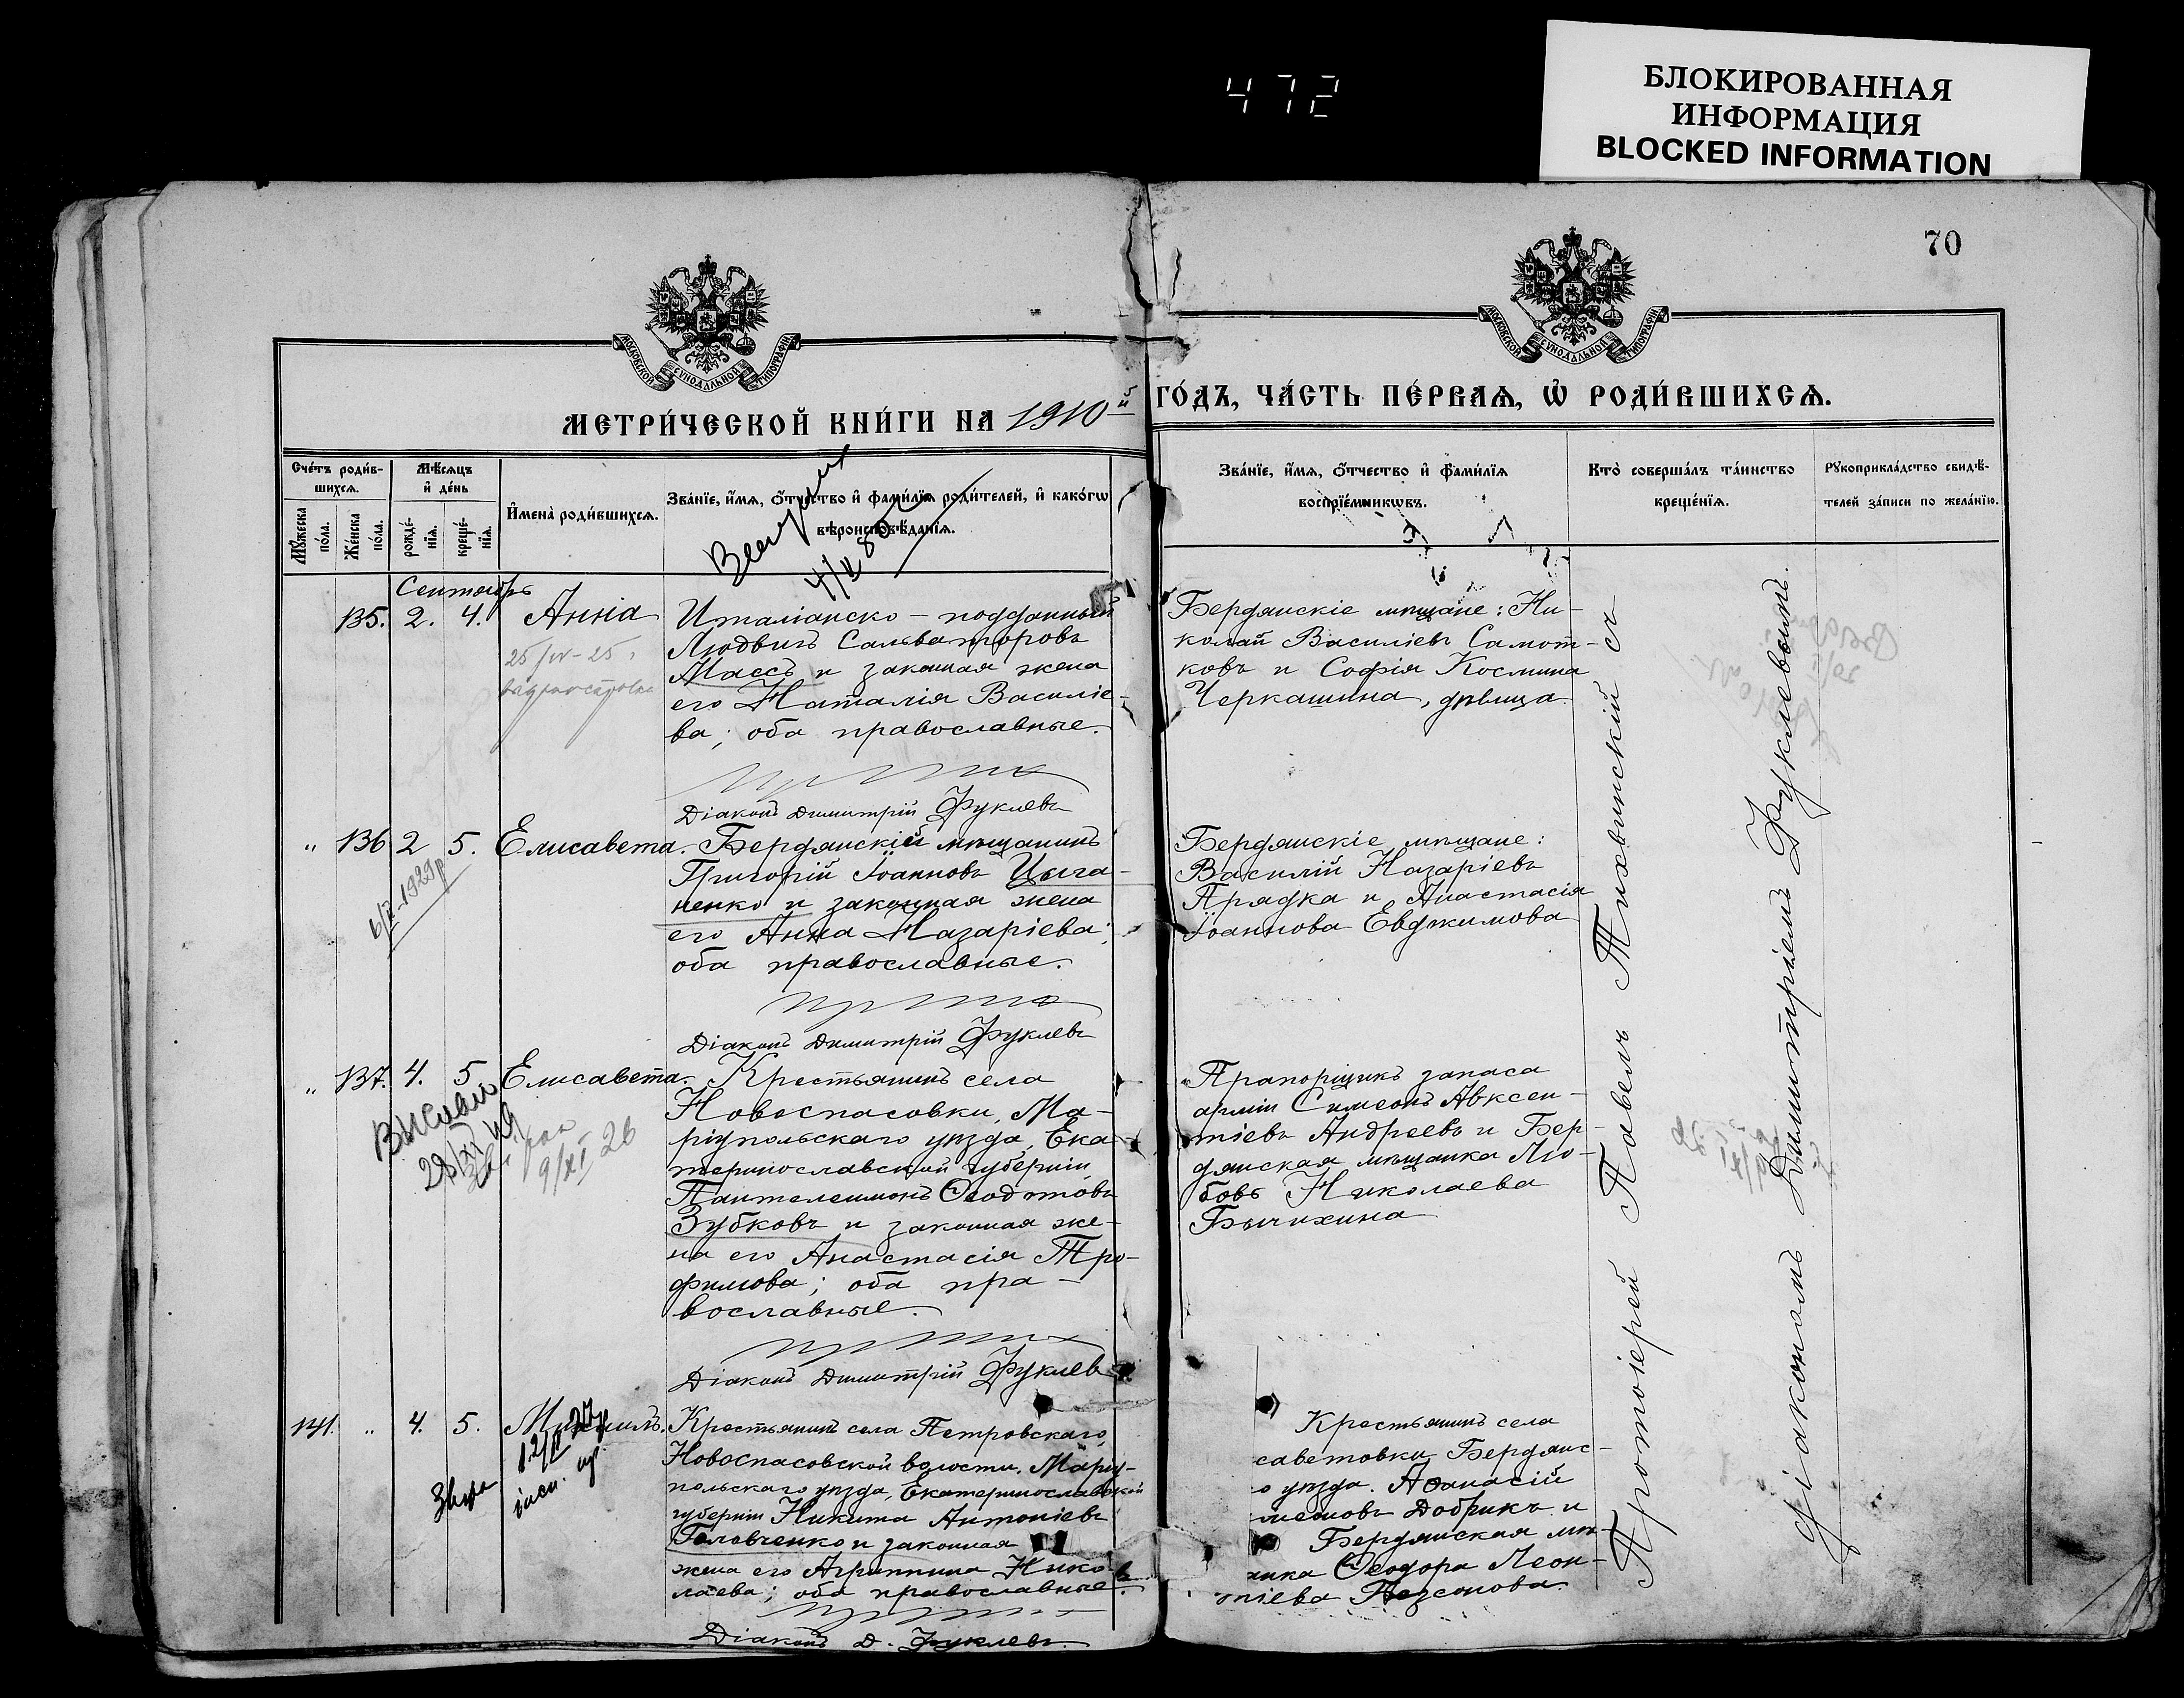 472
БЛОКИРОВАННАЯ
ИНФОРМАЦИЯ
BLOCKED INFORMATION
70
МОСКОВСКОЙ СУНОДАЛЬНОЙ ТИПОГРАФІИ
МОСКОВСКОЙ СУНОДАЛЬНОЙ ТИПОГРАФІИ
МЕТРИ́ЧЕСКОЙ КНИ́ГИ НА 1910й
ГО́ДЪ, ЧА́СТЬ ПЕ́РВАѦ, Ѡ РОДИ́ВШИХСѦ.
Сче́тъ роди́в-
шихсѧ.
Мꙋ́жеска по́ла.
Же́нска по́ла.
Мѣ́сѧцъ
и҆ де́нь
рожде́-
нїѧ.
креще́-
нїѧ.
И҆мена̀ роди́вшихсѧ.
Зва́нїе, и҆́мѧ, ѻ҆́тчество и҆ фами́лїѧ роди́телей, и҆ како́гѡ
вѣроисповѣ́данїѧ.
Зва́нїе, и҆́мѧ, ѻ҆́тчество и҆ фами́лїѧ
воспрїе́мникѡвъ.
Кто̀ соверша́лъ та́инство
креще́нїѧ.
Рꙋкоприкла́дство свидѣ́-
телей за́писи по жела́нїю.
Сентябрь
135. 2. 4. Анна
Италіанско - подданный
Людвигъ Сальваторовъ
Массъ и законная жена
его Наталія Василіе-
ва; оба православные.
Діаконъ Димитрій Фуклевъ
Бердянскіе мѣщане: Ни-
колай Василіевъ Самот-
ковъ и Софія Космина
Черкашина, дѣвица.
25/IV-25
„ 136 2 5. Елисавета.
Бердянскій мѣщанинъ
Григорій Іоанновъ Цыга-
ненко и законная жена
его Анна Назаріева;
оба православные.
Діаконъ Димитрій Фуклевъ
Бердянскіе мѣщане:
Василій Назаріевъ
Прядка и Анастасія
Іоаннова Евджимова
„ 137. 4. 5 Елисавета.
Крестьянинъ села
Новоспасовки, Ма-
ріупольскаго уѣзда, Ека-
теринославской губерніи
Пантелеимонъ Ѳеодотовъ
Зубковъ и законная же-
на его Анастасія Тро-
фимова; оба пра-
вославные.
Діаконъ Димитрій Фуклевъ
Прапорщикъ запаса
арміи Симеонъ Авксен-
тіевъ Андреевъ и Бер-
дянская мѣщанка Лю-
бовь Николаева
Бычихина
9/XI 26
141. „ 4. 5. Михаилъ.
Крестьянинъ села Петровскаго,
Новоспасовской волости, Маріу-
польскаго уѣзда, Екатеринославской
губерніи Никита Антоніевъ
Головченко и законная
жена его Агриппина Нико-
лаева; оба православные.
Діаконъ Д. Фуклевъ.
Крестьянинъ села
саветовки Бердянс-
о уѣзда. Аѳанасій
Добрикъ и
Бердянская мѣ-
анка Ѳеодора Леон-
тіева
Протоіерей Павелъ Тихвинскій съ
діакономъ Димитріемъ Фуклевымъ.